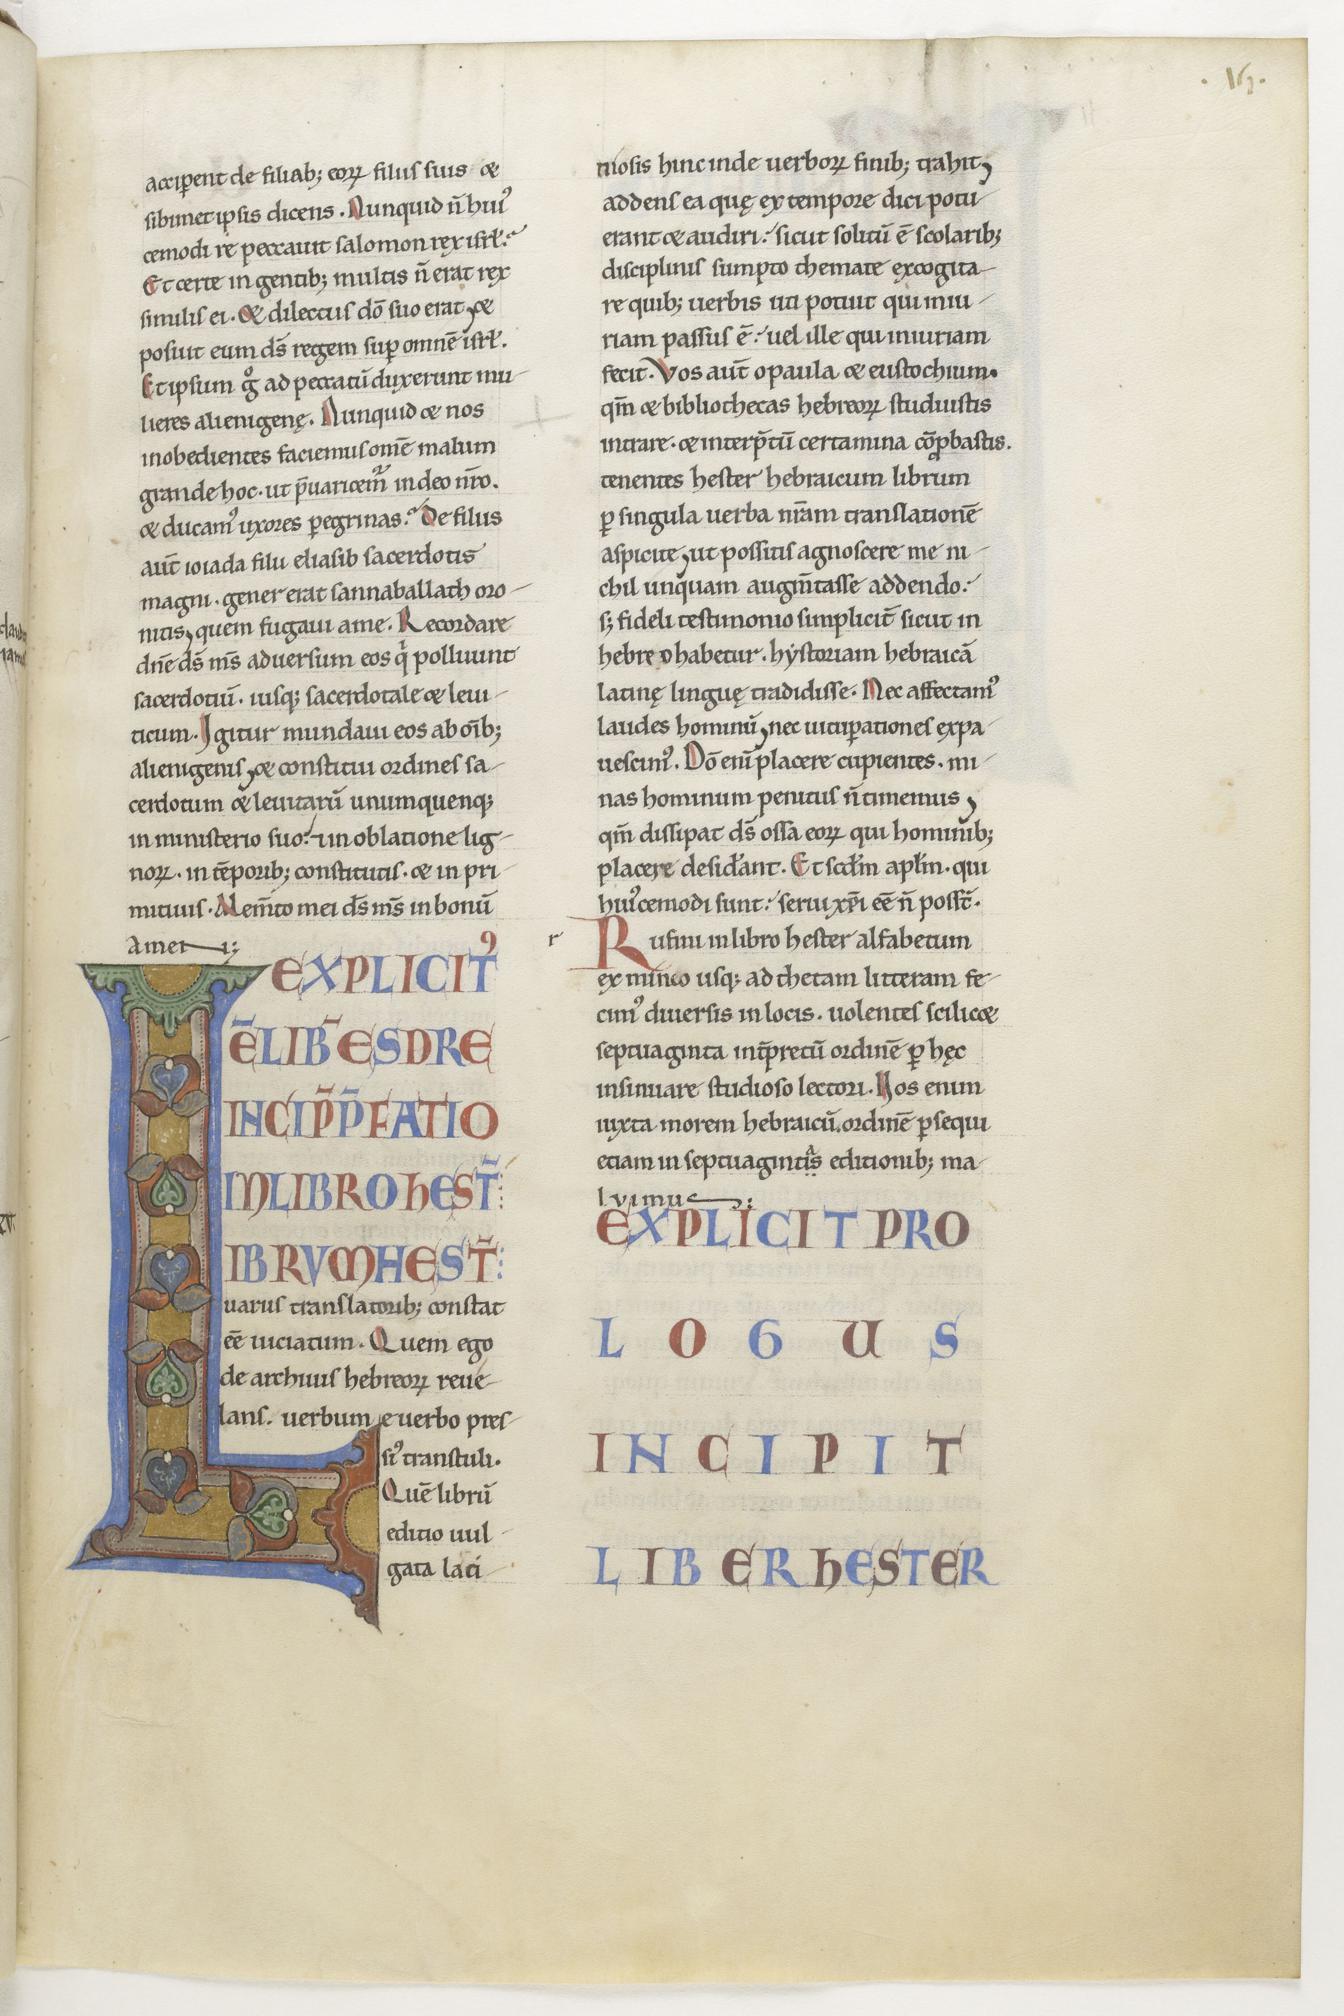 accip̄ent de filiab; eoꝝ filiis suis ⁊
sibimet ipsis dicens. Nunquid n̄ hui᾿
cemodi re peccauit salomon rex isrł.
Et certe in gentib; multis n̄ erat rex
similis ei. & dilectus dō suo erat, &
posuit eum dſ̄ regem suꝑ omnē isrł.
Et ipsum g̊ ad peccatū duxerunt mu
lieres alienigenę. Nunquid & nos
inobedientes faciemus om̄e malum
grande hoc. ut p̄uaricem᾿ in deo nr̄o.
& ducam᾿ uxores ꝑegrinas. De filiis
aut̄ ioiada filii eliasib sacerdotis
magni. gener erat sannaballath oro
nitis, quem fugaui a me. Recordare
dn̄e dſ̄ mſ̄ aduersum eos qͥ polluunt
sacerdotiū. iusq; sacerdotale & leui
ticum. Igitur mundaui eos ab om̄ib;
alienigenis, & constitui ordines sa
cerdotum & leuitarū unumquenq;
in ministerio suo. ⁊ in oblatione lig
noꝝ. in tēporib; constitutis. & in pri
mitiuis. Mem̄to mei dſ̄ mſ̄ in bonū
amen;
EXPLICIT
Ē LIB̄ ESDRE
INCIP̄ P̄FATIO
IN LIBRO hEST̄
LIBRVM HEST̄
uariis translatorib; constat
eē uiciatum. Quem ego
de archiuis hebreoꝝ reue
lans. uerbum e uerbo pres
si᾿ transtuli.
Quē librū
editio uul
gata laci
niosis hinc inde uerboꝝ finib; trahit,
addens ea quę ex tempore dici potu
erant & audiri. sicut solitū ē scolarib;
disciplinis sumpto themate excogita
re quib; uerbis uti potuit qui iniu
riam passus ē. uel ille qui iniuriam
fecit. Vos aut̄ o paula & eustochium.
qm̄ & bibliothecas hebreoꝝ studuistis
intrare. & interp̄tū certamina cōꝓbastis.
tenentes hester hebraicum librum
ꝑ singula uerba nr̄am translationē
aspicite, ut possitis agnoscere me ni
chil unquam augm̄tasse addendo.
s; fideli testimonio simplicit̄ sicut in
hebreo habetur. hystoriam hebraicā
latinę linguę tradidisse. Nec affectam᾿
laudes hominū, nec uituꝑationes expa
uescim᾿. Dō eni᾿ placere cupientes. mi
nas hominum penitus n̄ timemus,
qm̄ dissipat dſ̄ ossa eoꝝ qui hominib;
placere desid̄ant. Et scd̄m apl̄m. qui
hui᾿cemodi sunt. serui xp̄i eē n̄ poss̄t.
r
Rufini in libro hester alfabetum
ex minio usq; ad thetam litteram fe
cim᾿ diuersis in locis. uolentes scilic&
septuaginta int̄pretū ordinē ꝑ hęc
insinuare studioso lectori. Nos enim
iuxta morem hebraicū ordinē ꝓsequi
etiam in septuagintaͣ editionib; ma
luimus;
EXPLICIT PRO
LOGUS
INCIPIT
LIBER hESTER